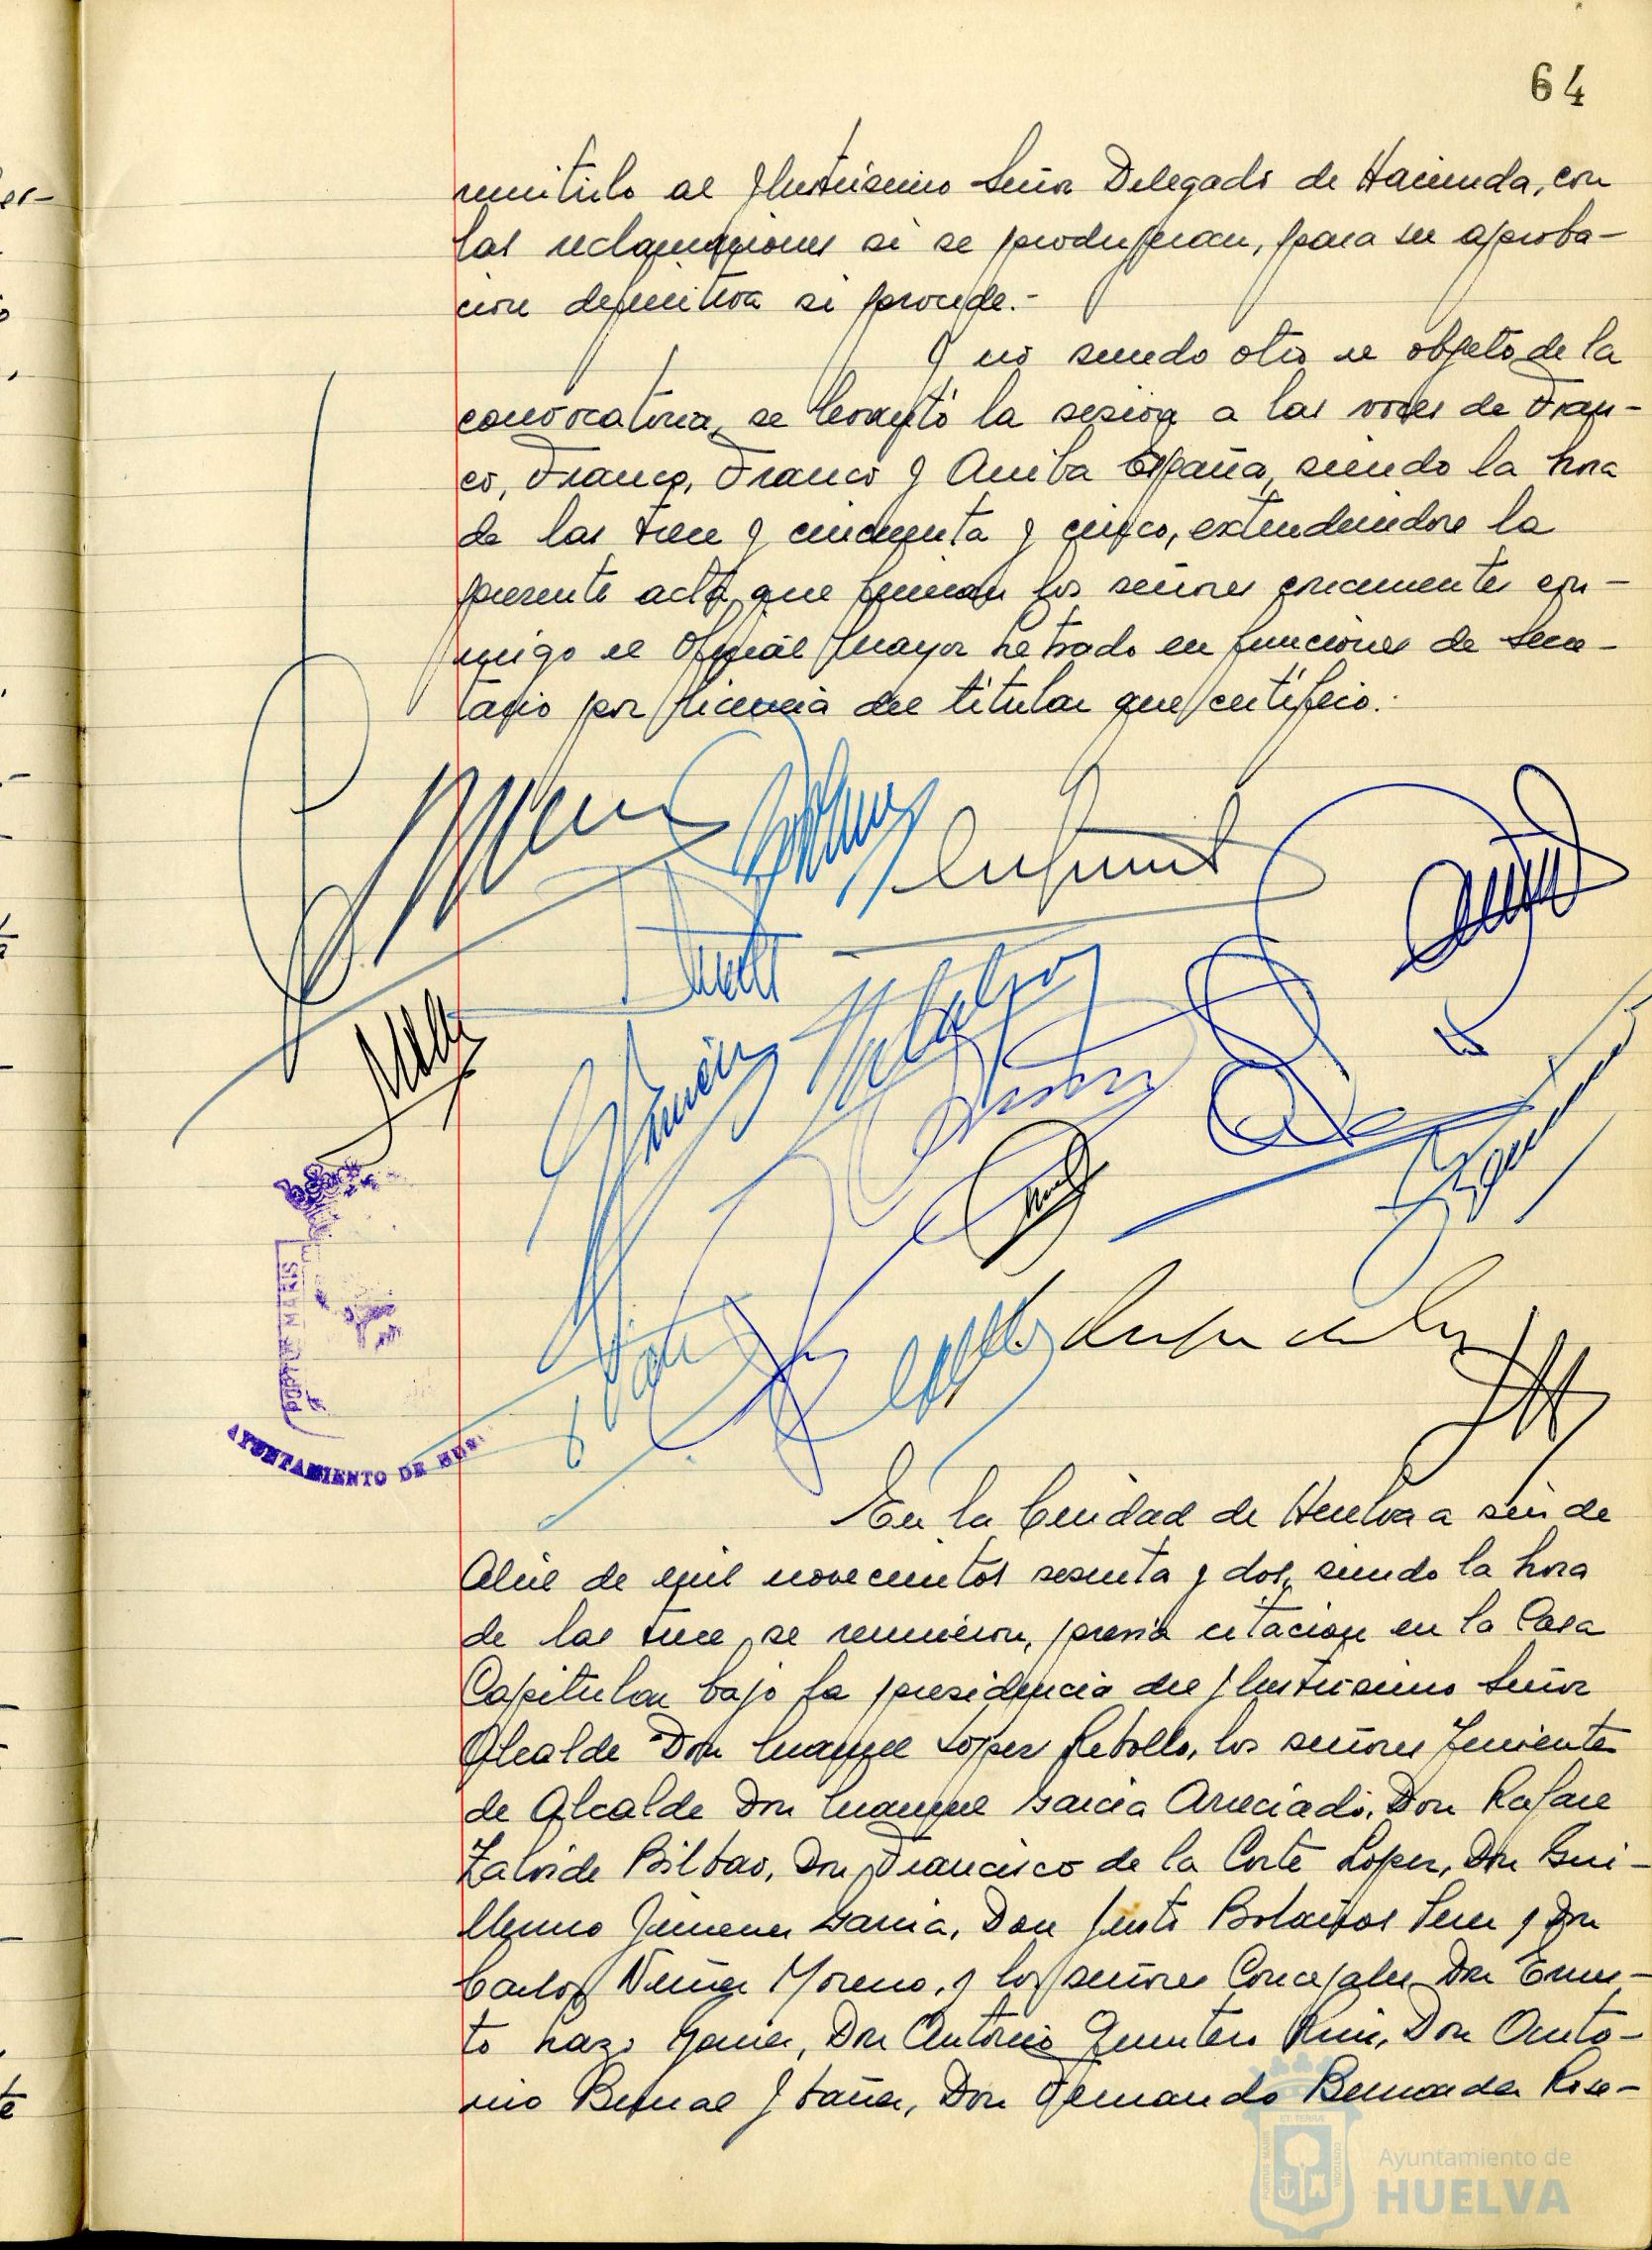 64
remitirlo al Ilustrísimo Señor Delegado de Hacienda, con
las reclamaciones si se produjeran, para su aproba-
ción definitiva si procede.-
Y no siendo otro el objeto de la
convocatoria, se levantó la sesión a las voces de Fran-
co, Franco, Franco y Arriba España, siendo la hora
de las trece y cincuenta y cinco, extendiendose la
presente acta que firman los señores concurrentes con-
migo el Oficial Mayor Letrado en funciones de Secre-
tario por licencia del titular que certifico.-
PORTUS MARIS
AYUNTAMIENTO DE HUEL
En la Ciudad de Huelva a seis de
Abril de mil novecientos sesenta y dos, siendo la hora
de las trece, se reunieron, previa citación en la Casa
Capitular bajo la presidencia del Ilustrisimo Señor
Alcalde Don Manuel Lopez Rebollo, los señores Tenientes
de Alcalde Don Manuel Garcia Areciado, Don Rafael
Zalvide Bilbao, Don Francisco de la Corte Lopez, Don Gui-
llermo Jimenez Garcia, Don Justo Bolaños Perez y Don
Carlos Nuñez Moreno, y los señores Concejales Don Ernes-
to Lazo Garcia, Don Antonio Quintero Ruiz, Don Anto-
nio Bernal Ibañez, Don Fernando Bermudez Rose-
Ayuntamiento de
HUELVA